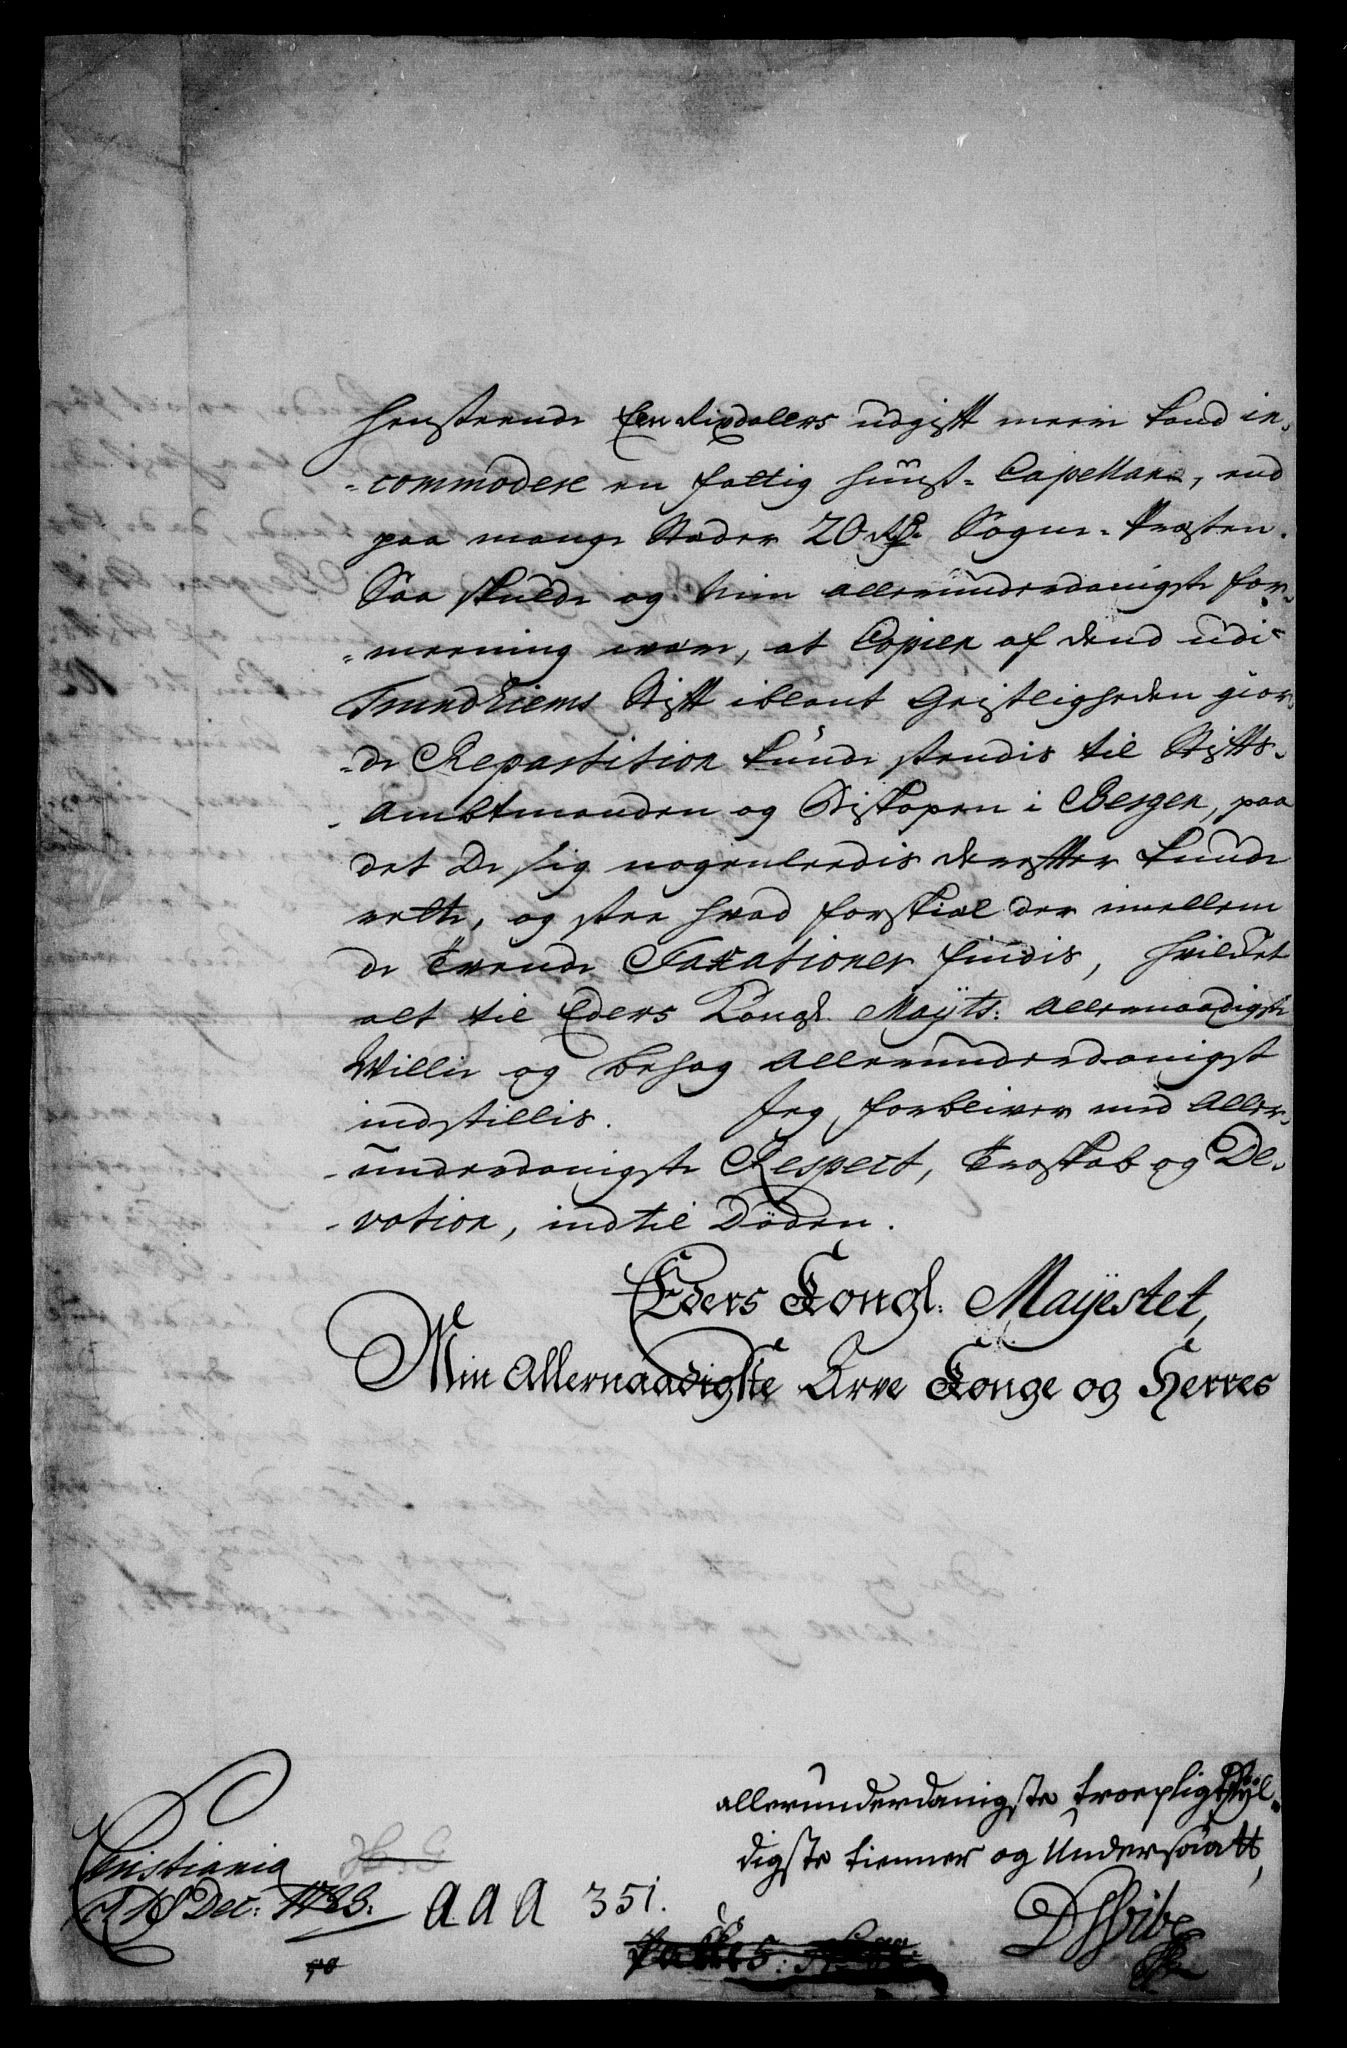 henseende Een Rixdalers udgift meere kand in-
-commodere en fattig huus-Capellan, end
paa mange Stæder 20 Rd. Sogne-Præsten.
Saa skulde og min allerunderdanigste for-
-meening være, at Copien af dend udi
Trundhiems Stift iblant Geistligheden gior-
-de Repartition kunde sendis til Stifts-
-Ambtmanden og Biskopen i Bergen, paa
det De sig nogenleedis derefter kunde
rette, og see hvad forskiæl der imellem
de tvende Taxationer findis, hvilket
alt til Eders Kongl. Mayts: allernaadigste
Villie og behag allerunderdanigst
indstillis. Jeg forbliver med aller-
-underdanigste Respect, troskab og De-
-votion, indtil Døden.
Eders Kongl: Mayestet,
Min Allernaadigste Arve Konge og Herres
allerunderdanigste troepligtskyl-
digste tienner og Undersaatt,
Christiania
d. 18 Dec: 1733.
a a a 351.
DVibe